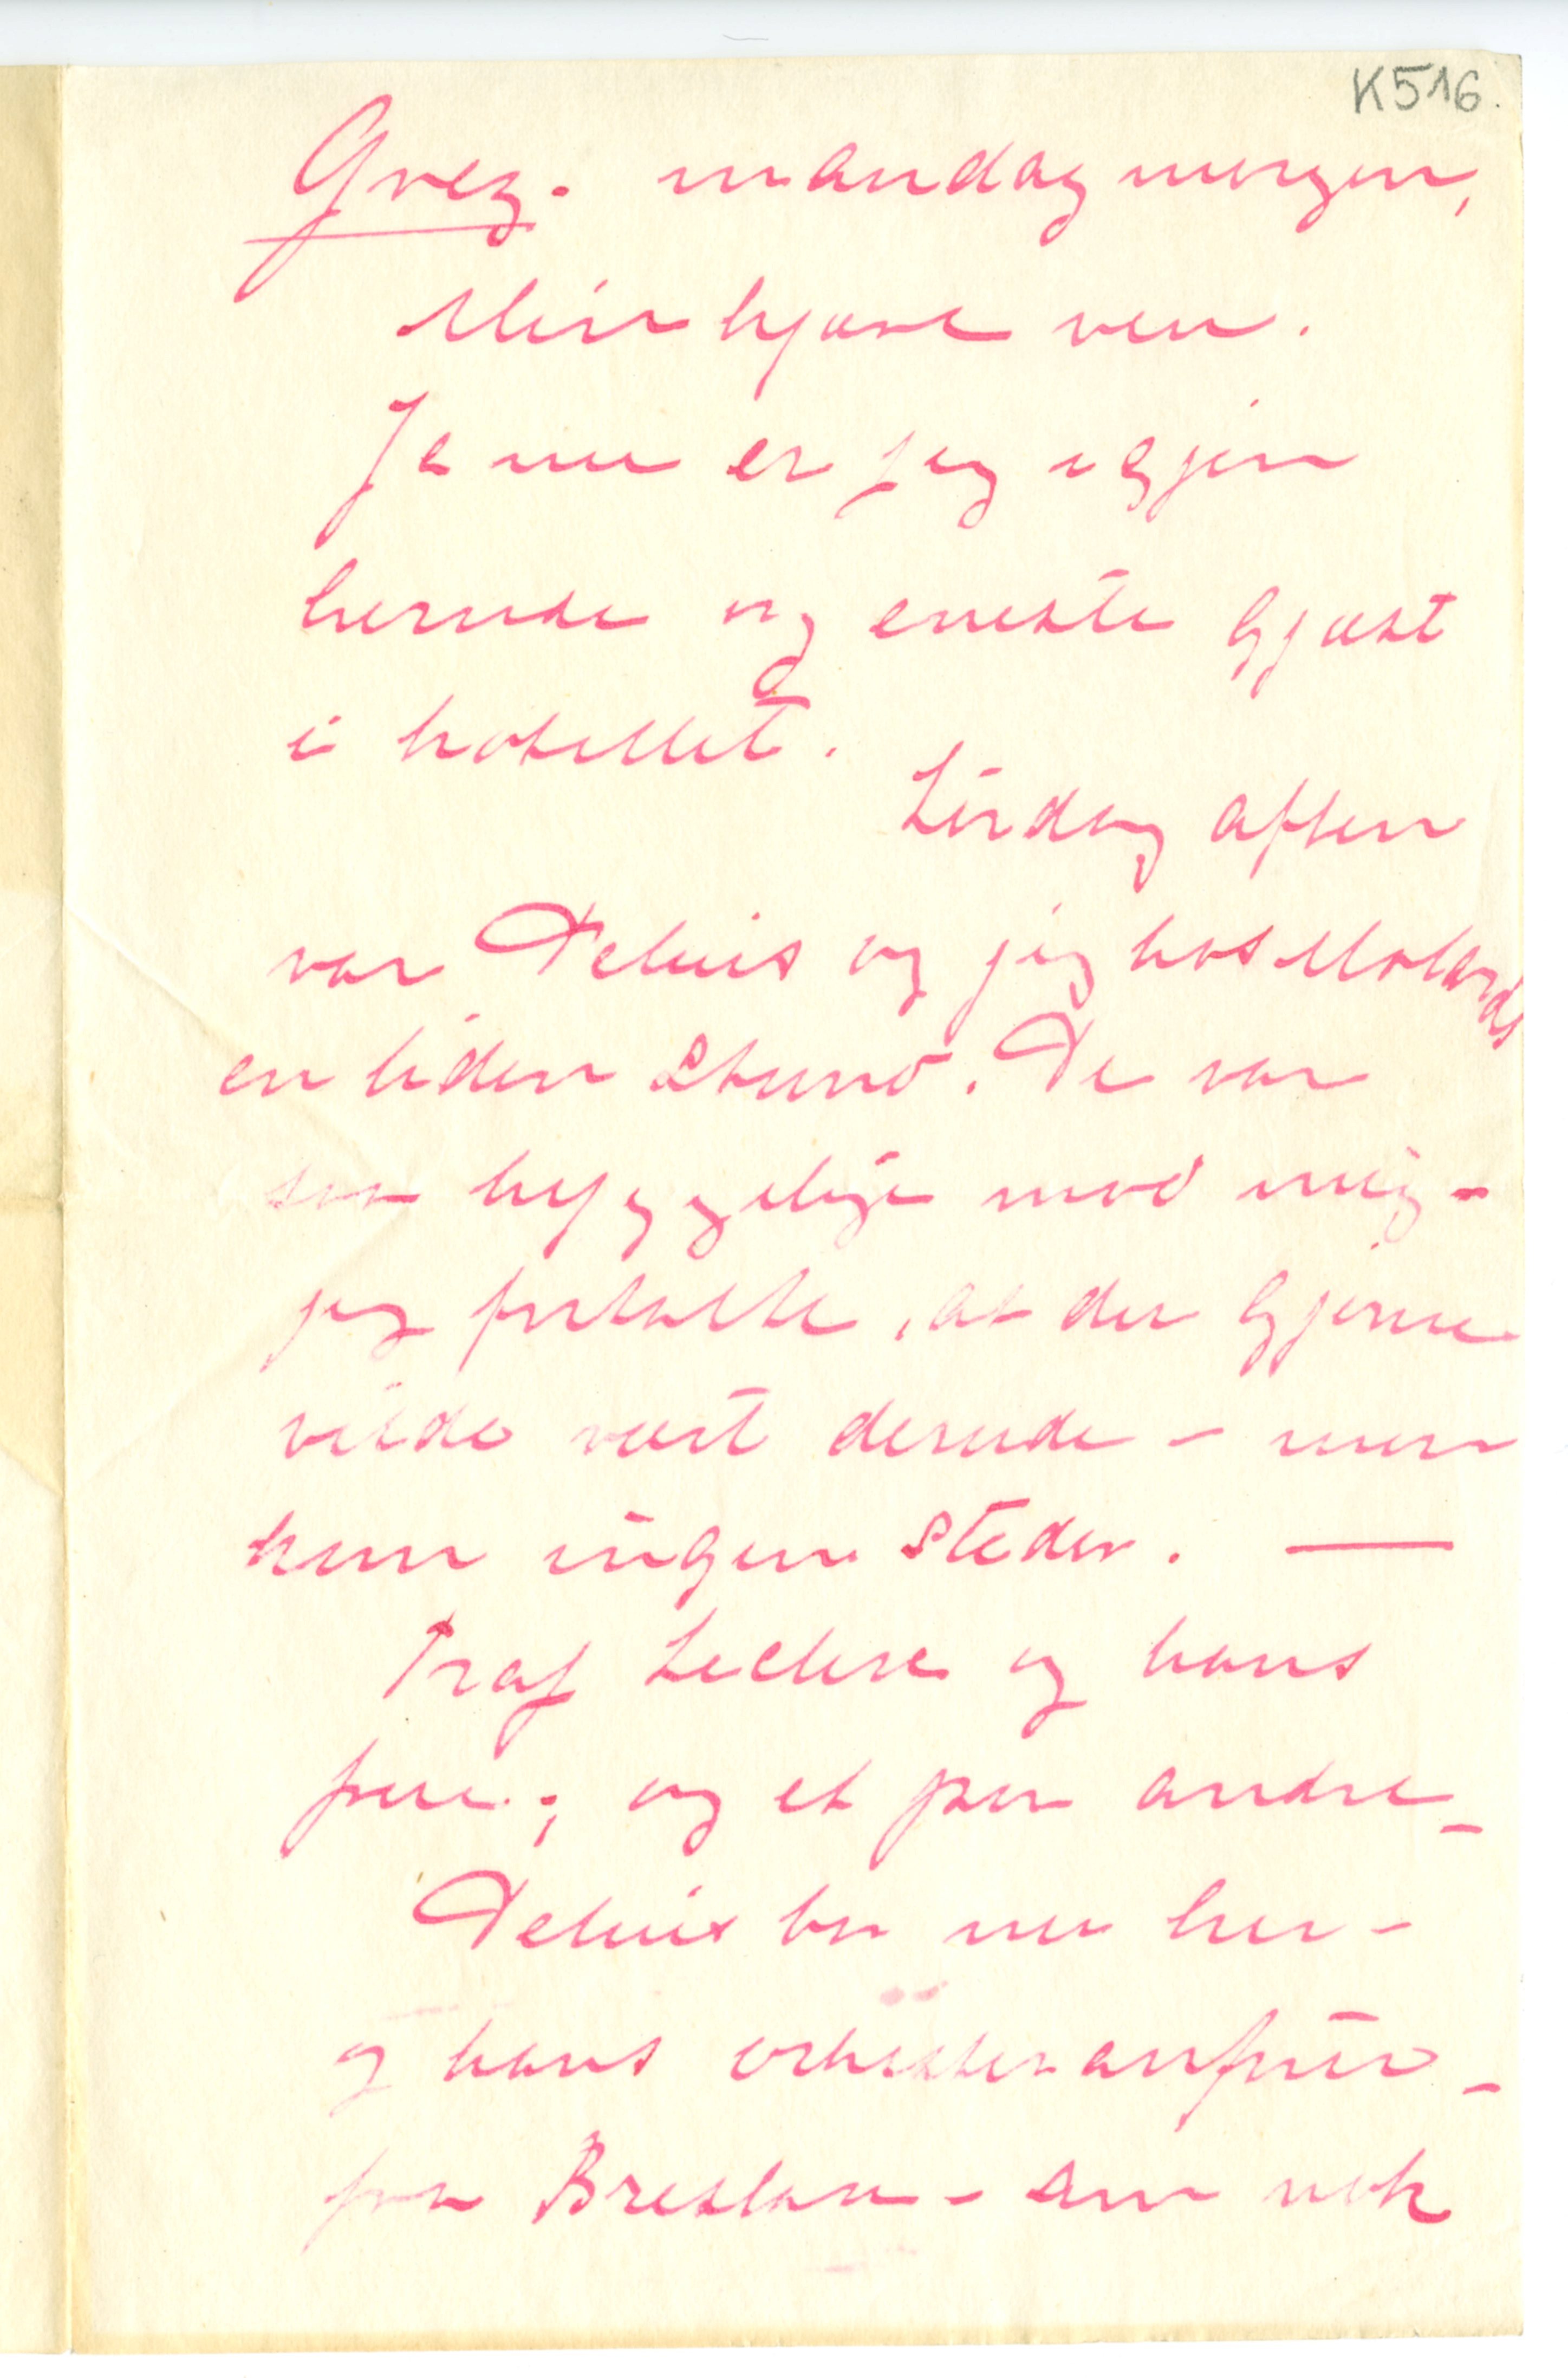 K516.
Grez. mandag morgen,
Min kjære ven.
Ja nu er jeg igjen
herude og eneste gjæst
i hotellet.
Lørdag aften
var Delius og jeg hos Molards
en liden stund. De var
saa hyggelige mod mig -
jeg fortalte, at du gjerne
vilde vært derude - men
kom ingen steder. —
Traf Leclerc og hans
frue; og et par andre -
Delius bor nu her -
og hans orchester anfører -
fra Breslau - som nok